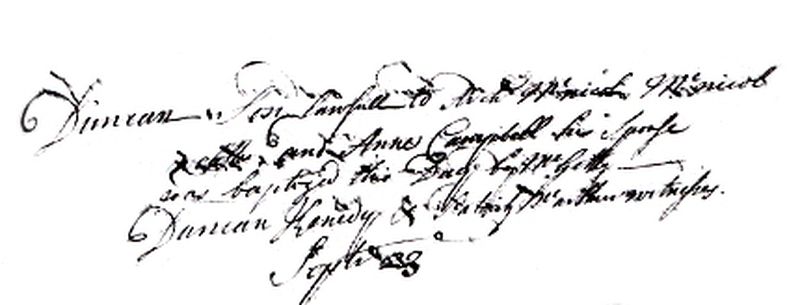 Duncan Son Lawfull to Arch^d McNicol
and Anne Campbell his Spouse
was baptized this Day by Mr
Duncan Kenedy & Patrick McArthur witnesses.
Sept^r